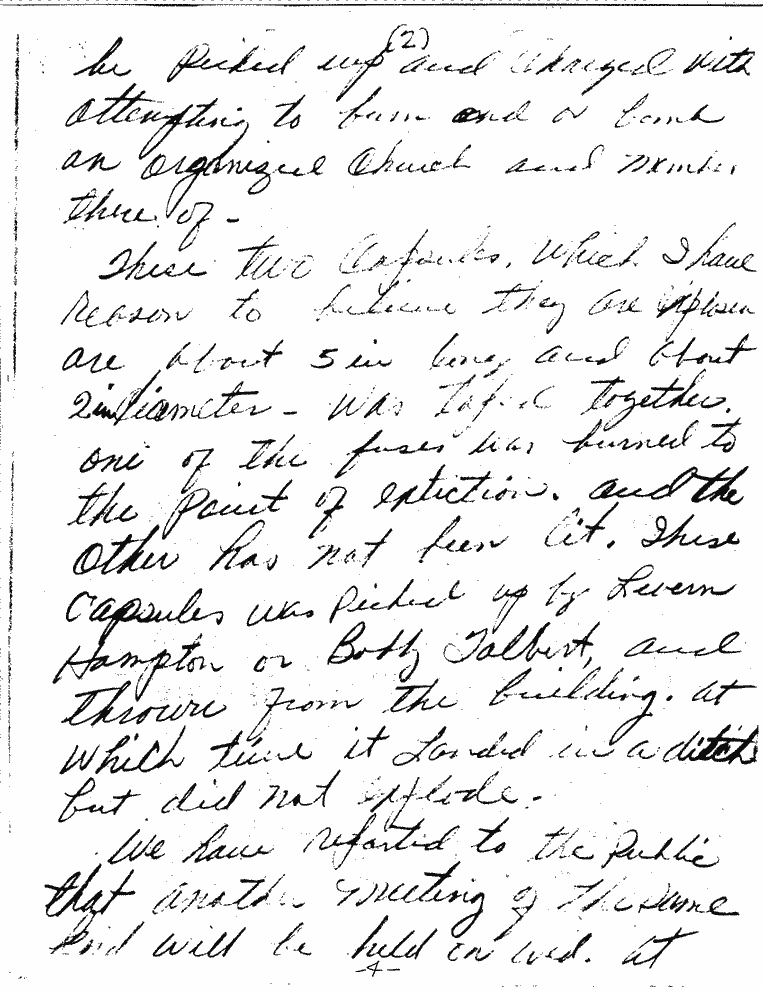 (2)
be Picked up and Charged with
attempting to burn and or bomb
an organized Church and member
there of -
These two Capsules. Which I have
reason to believe they are
are about 5 in long and about
2 in Diameter - Was taped together.
one of the fuses was burned to
the Point of extiction. and the
Other has not been lit. These
Capsules was Picked up by Levern
Hampton or Bobby Talbert, and
thrown from the building. at
Which time it Landed in a ditch
but did not explode.
We have reported to the Public
that another meeting of the same
kind will be held on wed. at
-4-